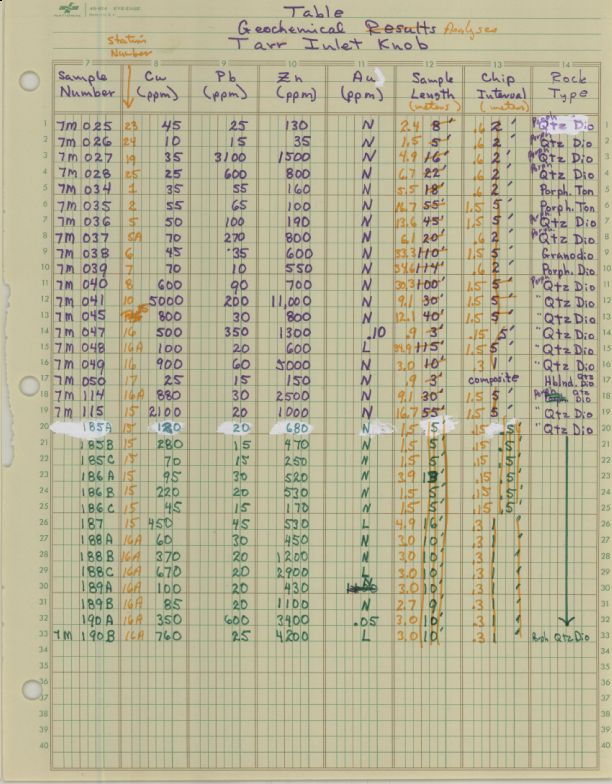 NATIONAL
45-604 EYE-EASE
Table
Geochemical Results Analyses
Tarr Inlet Knob
Station Number
7 8 9 10 11 12 13 14
Sample Number Cu (ppm) Pb (ppm) Zn (ppm) Au (ppm) Sample Length (meters) Chip Interval (meters) Rock Type
1 7M 025 23 45 25 130 N 2.4 8' .6 2' Porph. Qtz Dio 1
2 7M 026 24 10 15 35 N 1.5 5' .6 2' Porph. Qtz Dio 2
3 7M 027 19 35 3100 1500 N 4.9 16' .6 2' Porph. Qtz Dio 3
4 7M 028 25 25 600 800 N 6.7 22' .6 2' Porph. Qtz Dio 4
5 7M 034 1 35 55 160 N 5.5 18' .6 2' Porph. Ton 5
6 7M 035 2 55 65 100 N 16.7 55' 1.5 5' Porph. Ton 6
7 7M 036 5 50 100 190 N 13.6 45' 1.5 5' Porph. Qtz Dio 7
8 7M 037 5A 70 270 800 N 6.1 20' .6 2' Porph. Qtz Dio 8
9 7M 038 6 45 35 600 N 33.3 110' 1.5 5' Granodio 9
10 7M 039 7 70 10 550 N 34.6 114' .6 2' Porph. Dio 10
11 7M 040 8 600 90 700 N 30.3 100' 1.5 5' Porph. Qtz Dio 11
12 7M 041 10 5000 200 11,000 N 9.1 30' 1.5 5' " Qtz Dio 12
13 7M 045 800 30 800 N 12.1 40' 1.5 5' " Qtz Dio 13
14 7M 047 16 500 350 1300 .10 .9 3' .15 .5' " Qtz Dio 14
15 7M 048 16A 100 20 600 L 34.9 115' 1.5 5' " Qtz Dio 15
16 7M 049 16 900 60 5000 N 3.0 10' .3 1' " Qtz Dio 16
17 7M 050 17 25 15 150 N .9 3' composite Hblnd. Qtz Dio 17
18 7M 114 16A 880 30 2500 N 9.1 30' 1.5 5' Porph Qtz Dio 18
19 7M 115 15 2100 20 1000 N 16.7 55' 1.5 5' " Qtz Dio 19
20 185A 15 180 20 680 N 1.5 5' .15 .5' " Qtz Dio 20
21 185B 15 280 15 470 N 1.5 5' .15 .5' 21
22 185C 15 70 15 250 N 1.5 5' .15 .5' 22
23 186A 15 95 30 520 N 3.9 13' .15 .5' 23
24 186B 15 220 20 530 N 1.5 5' .15 .5' 24
25 186C 15 45 15 170 N 1.5 5' .15 .5' 25
26 187 15 450 45 530 L 4.9 16' .3 1' 26
27 188A 16A 60 30 450 N 3.0 10' .3 1' 27
28 188B 16A 370 20 1200 N 3.0 10' .3 1' 28
29 188C 16A 670 20 2900 L 3.0 10' .3 1' 29
30 189A 16A 100 20 430 N 3.0 10' .3 1' 30
31 189B 16A 85 20 1100 N 2.7 9' .3 1' 31
32 190A 16A 350 600 3400 .05 3.0 10' .3 1' 32
33 7M 190B 16A 760 25 4200 L 3.0 10' .3 1' Porph Qtz Dio 33
34 34
35 35
36 36
37 37
38 38
39 39
40 40